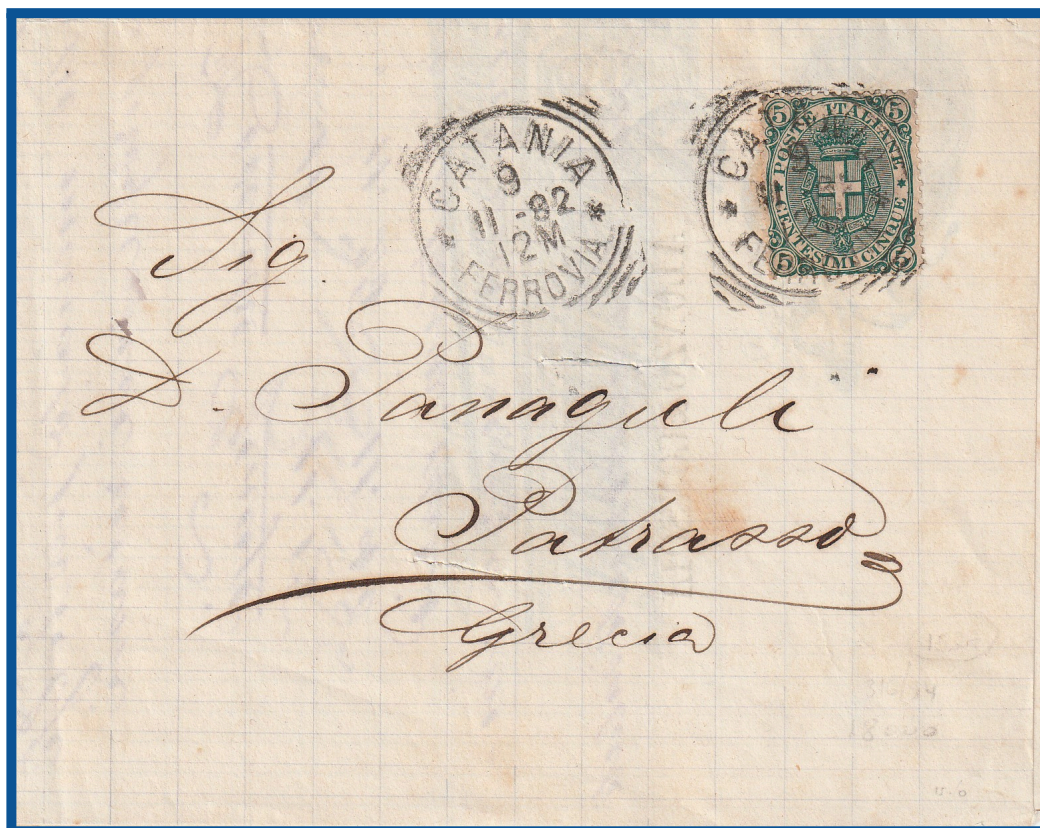 CATANIA
9
11 -92
12M
* FERROVIA *
5 5
POSTE ITALIANE
CENTESIMI CINQUE
5
Sig.
D. Panaguli
Patrasso
Grecia